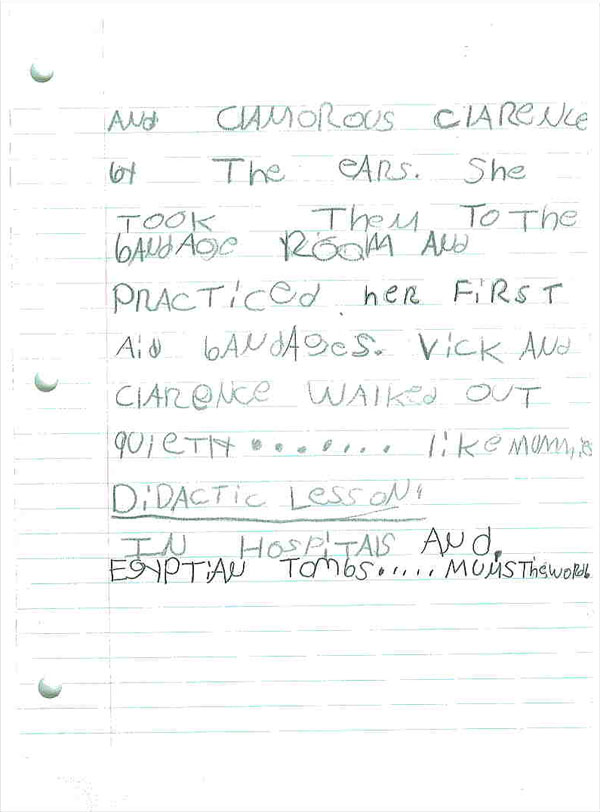 And CLAMOROUS CLARENCE
by The eARS. She
TOOK Them To The
bANdAge ROOM ANd
PRACTiced her FiRST
Aid bANdAges. Vick ANd
CLARENCE WALKed OUT
QUieTly ........ like mummies
DiDACTiC LessON:
IN HospiTAls ANd
EgypTiAN Tombs..... MUMS The word!